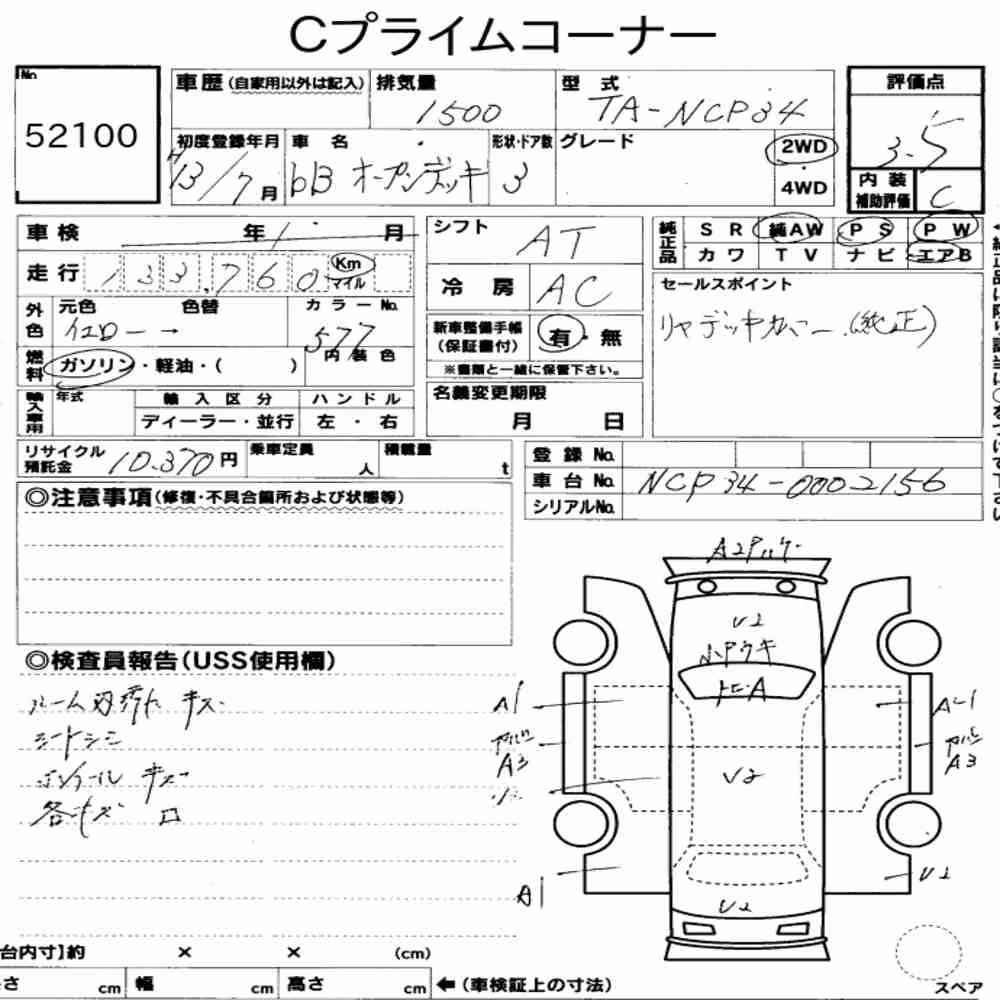 Cプライムコーナー
No.
52100
車歴(自家用以外は記入)
排気量
1500
型 式
TA-NCP34
評価点
3.5
初度登録年月
H13/7月
車 名
bB オープンデッキ
形状・ドア数
3
グレード
2WD
・
4WD
内 装
補助評価
C
車検 年 月
走行 133,760 Km
マイル
シフト
AT
冷 房
AC
純正品
SR 純AW PS PW
カワ TV ナビ エアB
外色
元色 色替
イエロー →
カラーNo.
577
内装色
燃料
ガソリン・軽油・( )
新車整備手帳
(保証書付)
有・無
※書類と一緒に保管下さい。
セールスポイント
リヤデッキカバー(純正)
輸入車用
年式
輸入区分
ディーラー・並行
ハンドル
左・右
名義変更期限
月 日
リサイクル
預託金
10.370円
乗車定員
人
積載量
t
登録No.
車台No. NCP34-0002156
シリアルNo.
◎注意事項(修復・不具合箇所および状態等)
◎検査員報告(USS使用欄)
シートシミ
各キズ
A1
A3
A1
A3
U2
U2
U2
U2
A1
台内寸]約 × × (cm)
さ cm 幅 cm 高さ cm ←(車検証上の寸法)
スペア